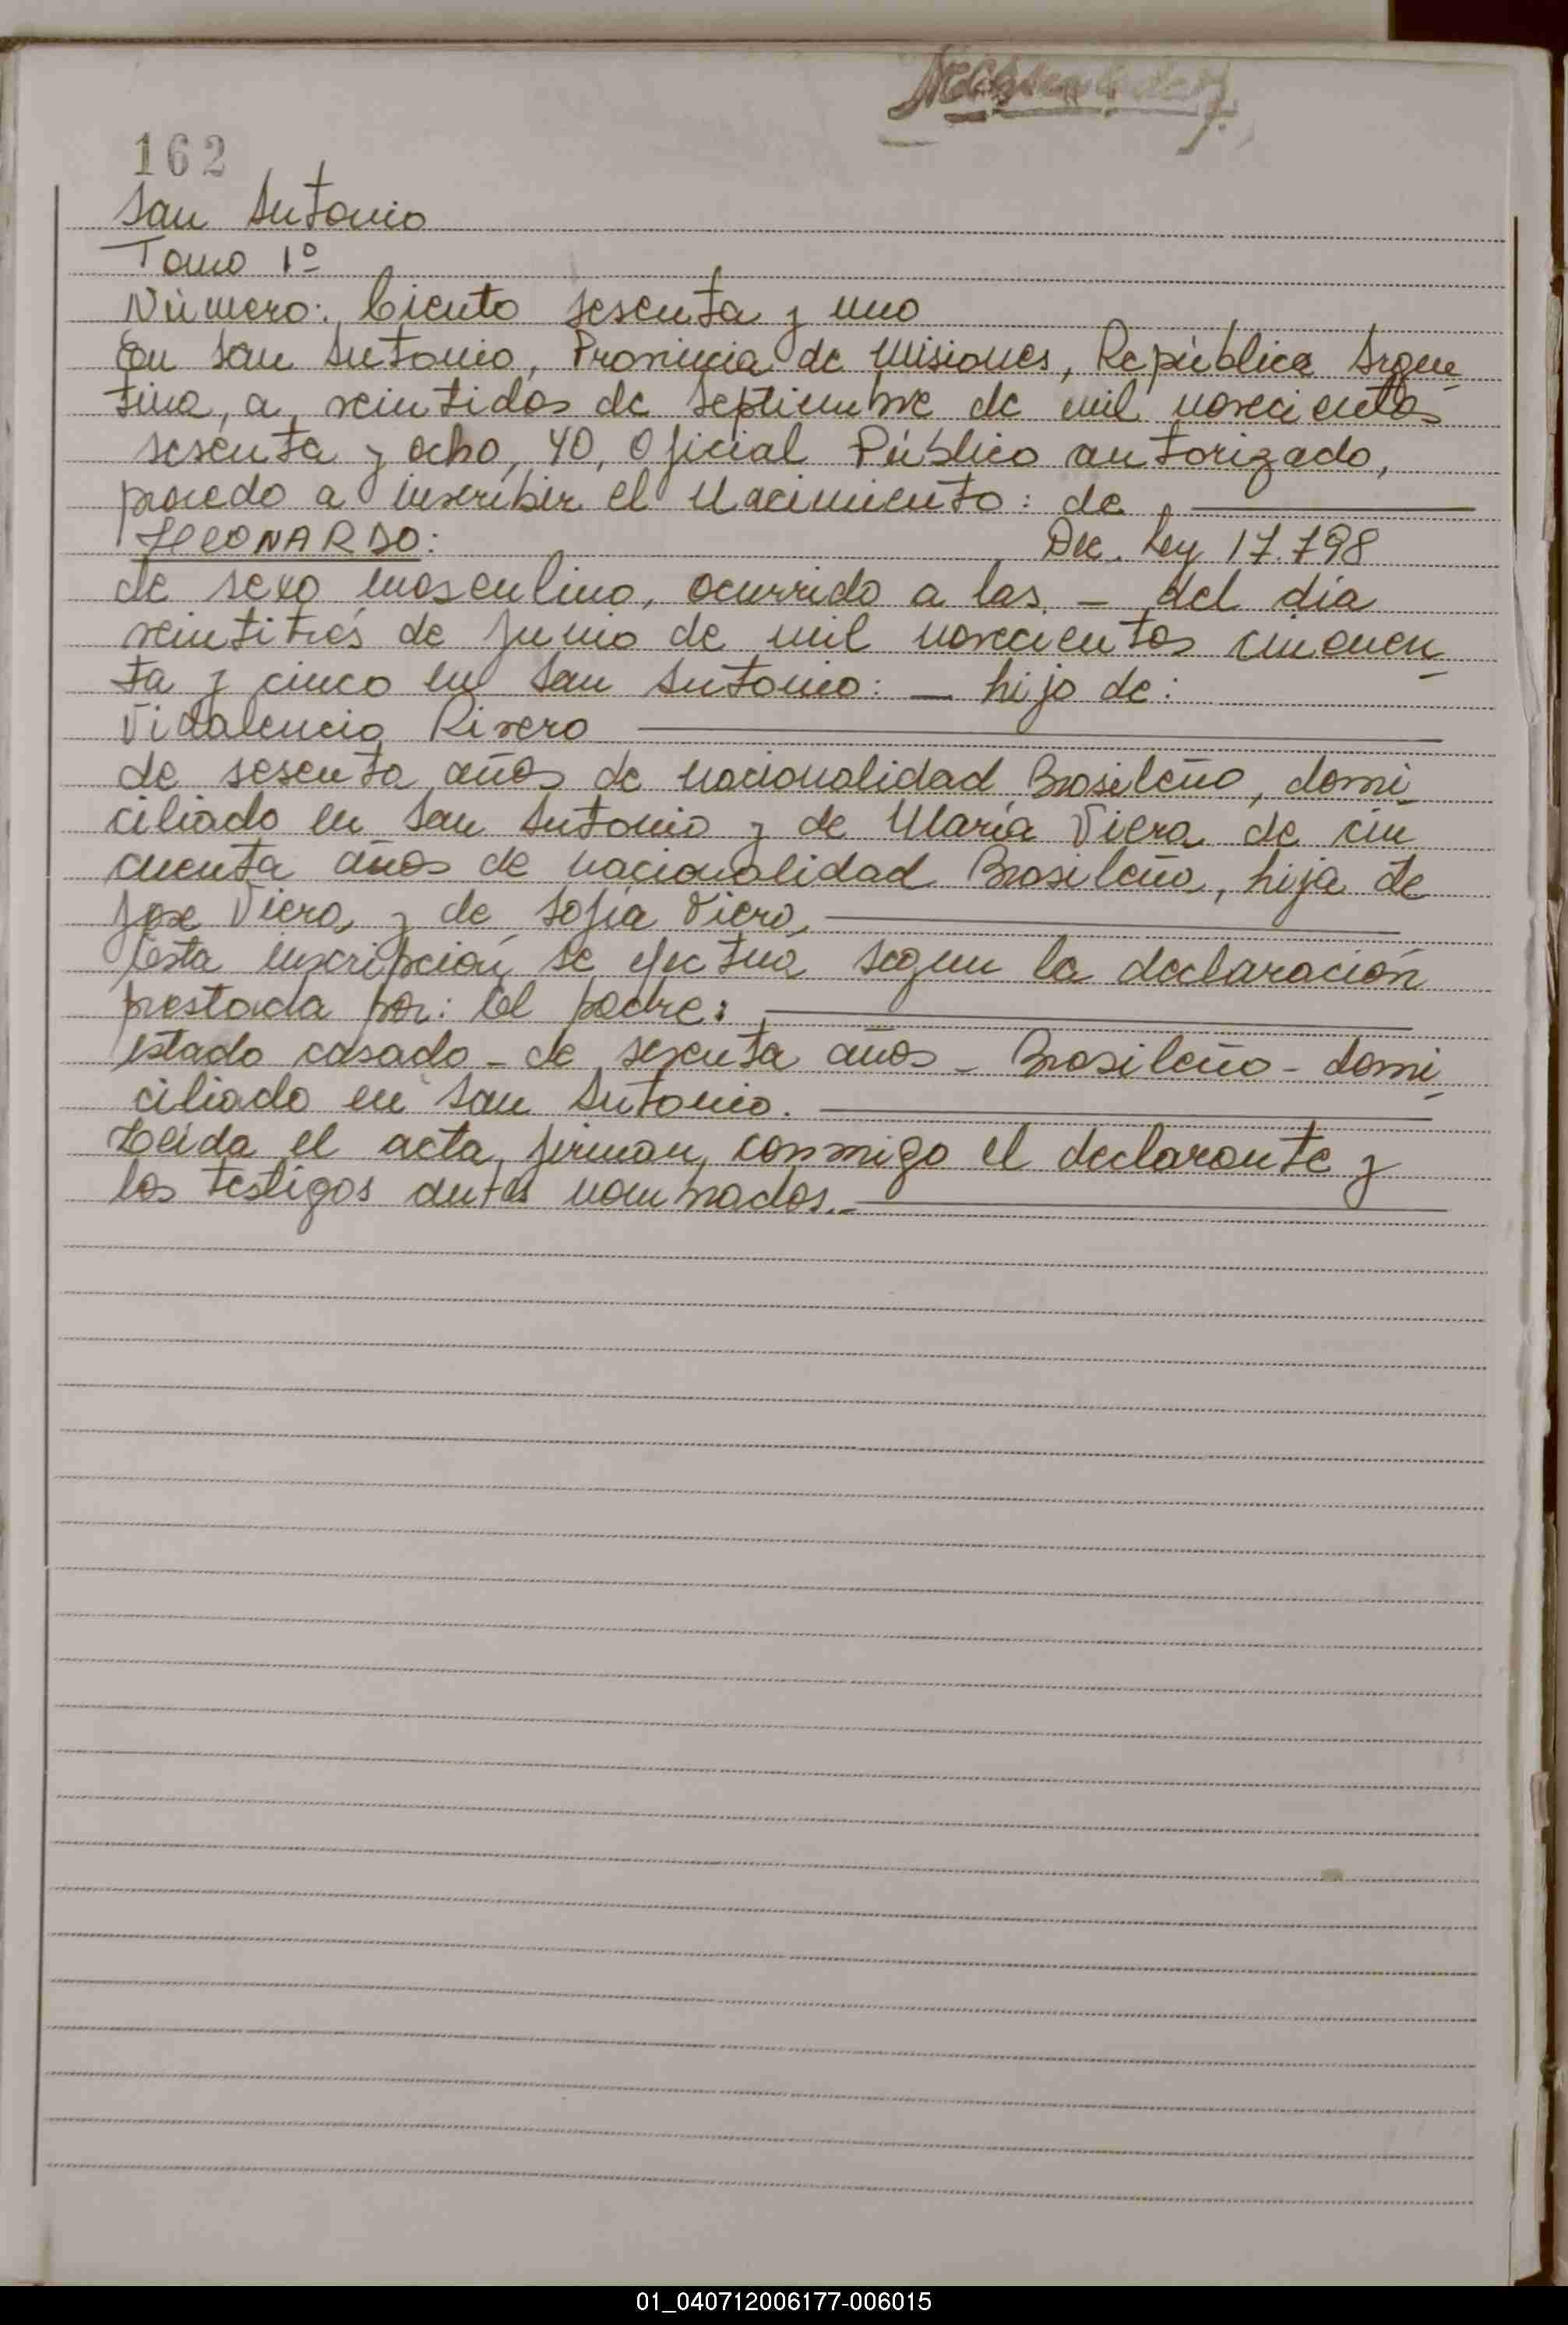 162
San Antonio
Tomo 1º
Número: Ciento sesenta y uno
En San Antonio, Provincia de Misiones, República Argen
tina, a veintidos de Septiembre de mil novecientos
sesenta y ocho, YO, Oficial Público autorizado,
procedo a inscribir el Nacimiento: de
LEONARDO: Dec. Ley 17.798
de sexo masculino, ocurrido a las — del día
veintitrés de Junio de mil novecientos cincuen_
ta y cinco en San Antonio: — hijo de:
Vidalencio Rivero
de sesenta años de nacionalidad Brasileño, domi_
ciliado en San Antonio y de María Viera de cin
cuenta años de nacionalidad Brasileña, hija de
Jose Viera y de Sofía Viera,
Esta inscripción se efectua segun la declaración
prestada por: El padre:
estado casado - de sesenta años - Brasileño - domi_
ciliado en San Antonio.
Leída el acta, firman conmigo el declarante y
los testigos antes nombrados.-
01_040712006177-006015